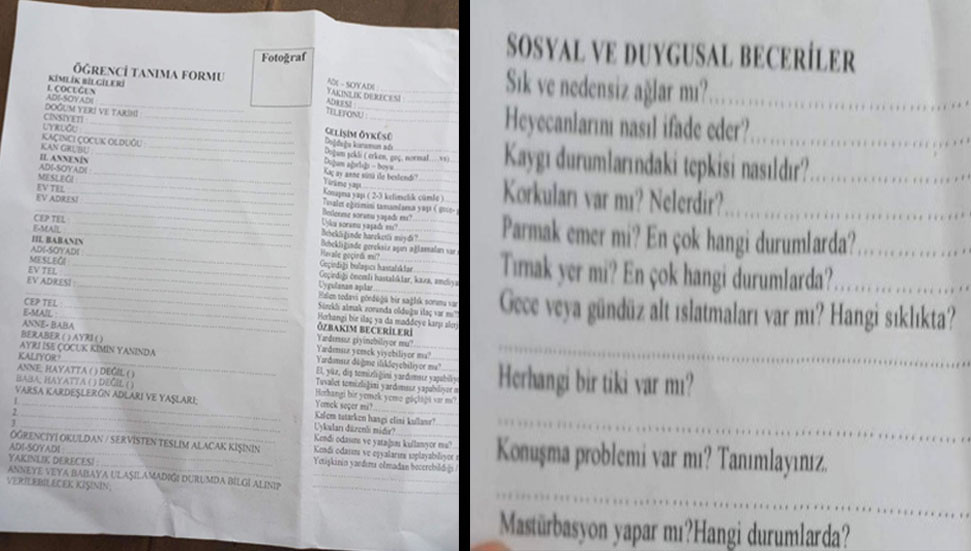 ÖĞRENCİ TANIMA FORMU
Fotoğraf
KİMLİK BİLGİLERİ
I. ÇOCUĞUN
ADI-SOYADI :
DOĞUM YERİ VE TARİHİ :
CİNSİYETİ :
UYRUĞU :
KAÇINCI ÇOCUK OLDUĞU :
KAN GRUBU :
II. ANNENİN
ADI-SOYADI :
MESLEĞİ :
EV TEL :
EV ADRESİ :
CEP TEL :
E-MAIL :
III. BABANIN
ADI-SOYADI :
MESLEĞİ :
EV TEL :
EV ADRESİ :
CEP TEL :
E-MAIL :
ANNE- BABA
BERABER ( ) AYRI ( )
AYRI İSE ÇOCUK KİMİN YANINDA
KALIYOR?
ANNE; HAYATTA ( ) DEĞİL ( )
BABA; HAYATTA ( ) DEĞİL ( )
VARSA KARDEŞLERİN ADLARI VE YAŞLARI;
1
2
3
ÖĞRENCİYİ OKULDAN / SERVİSTEN TESLİM ALACAK KİŞİNİN
ADI-SOYADI :
YAKINLIK DERECESİ :
ANNEYE VEYA BABAYA ULAŞILAMADIĞI DURUMDA BİLGİ ALINIP
VERİLEBİLECEK KİŞİNİN;
ADI – SOYADI :
YAKINLIK DERECESİ :
ADRESİ :
TELEFONU :
GELİŞİM ÖYKÜSÜ
Doğduğu kurumun adı
Doğum şekli ( erken, geç, normal
Doğum ağırlığı – boyu
Kaç ay anne sütü ile beslendi?
Yürüme yaşı
Konuşma yaşı ( 2-3 kelimelik cümle )
Tuvalet eğitimini tamamlama yaşı (
Beslenme sorunu yaşadı mı?
Uyku sorunu yaşadı mı?
Bebekliğinde hareketli miydi?
Bebekliğinde gereksiz aşırı ağlamaları var
Havale geçirdi mi?
Geçirdiği bulaşıcı hastalıklar
Geçirdiği önemli hastalıklar, kaza, ameliya
Uygulanan aşılar
Halen tedavi gördüğü bir sağlık sorunu var
Sürekli almak zorunda olduğu ilaç var mı?
Herhangi bir ilaç ya da maddeye karşı alerj
ÖZBAKIM BECERİLERİ
Yardımsız giyinebiliyor mu?
Yardımsız yemek yiyebiliyor mu?
Yardımsız düğme ilikleyebiliyor mu?
El, yüz, diş temizliğini yardımsız yapabiliyo
Tuvalet temizliğini yardımsız yapabiliyor m
Herhangi bir yemek yeme güçlüğü var mı?
Yemek seçer mi?
Kalem tutarken hangi elini kullanır?
Uykuları düzenli midir?
Kendi odasını ve yatağını kullanıyor mu?
Kendi odasını ve eşyalarını toplayabiliyor
Yetişkinin yardımı olmadan becerebildiği
SOSYAL VE DUYGUSAL BECERİLER
Sık ve nedensiz ağlar mı?
Heyecanlarını nasıl ifade eder?
Kaygı durumlarındaki tepkisi nasıldır?
Korkuları var mı? Nelerdir?
Parmak emer mi? En çok hangi durumlarda?
Tırnak yer mi? En çok hangi durumlarda?
Gece veya gündüz alt ıslatmaları var mı? Hangi sıklıkta?
Herhangi bir tiki var mı?
Konuşma problemi var mı? Tanımlayınız.
Mastürbasyon yapar mı?Hangi durumlarda?